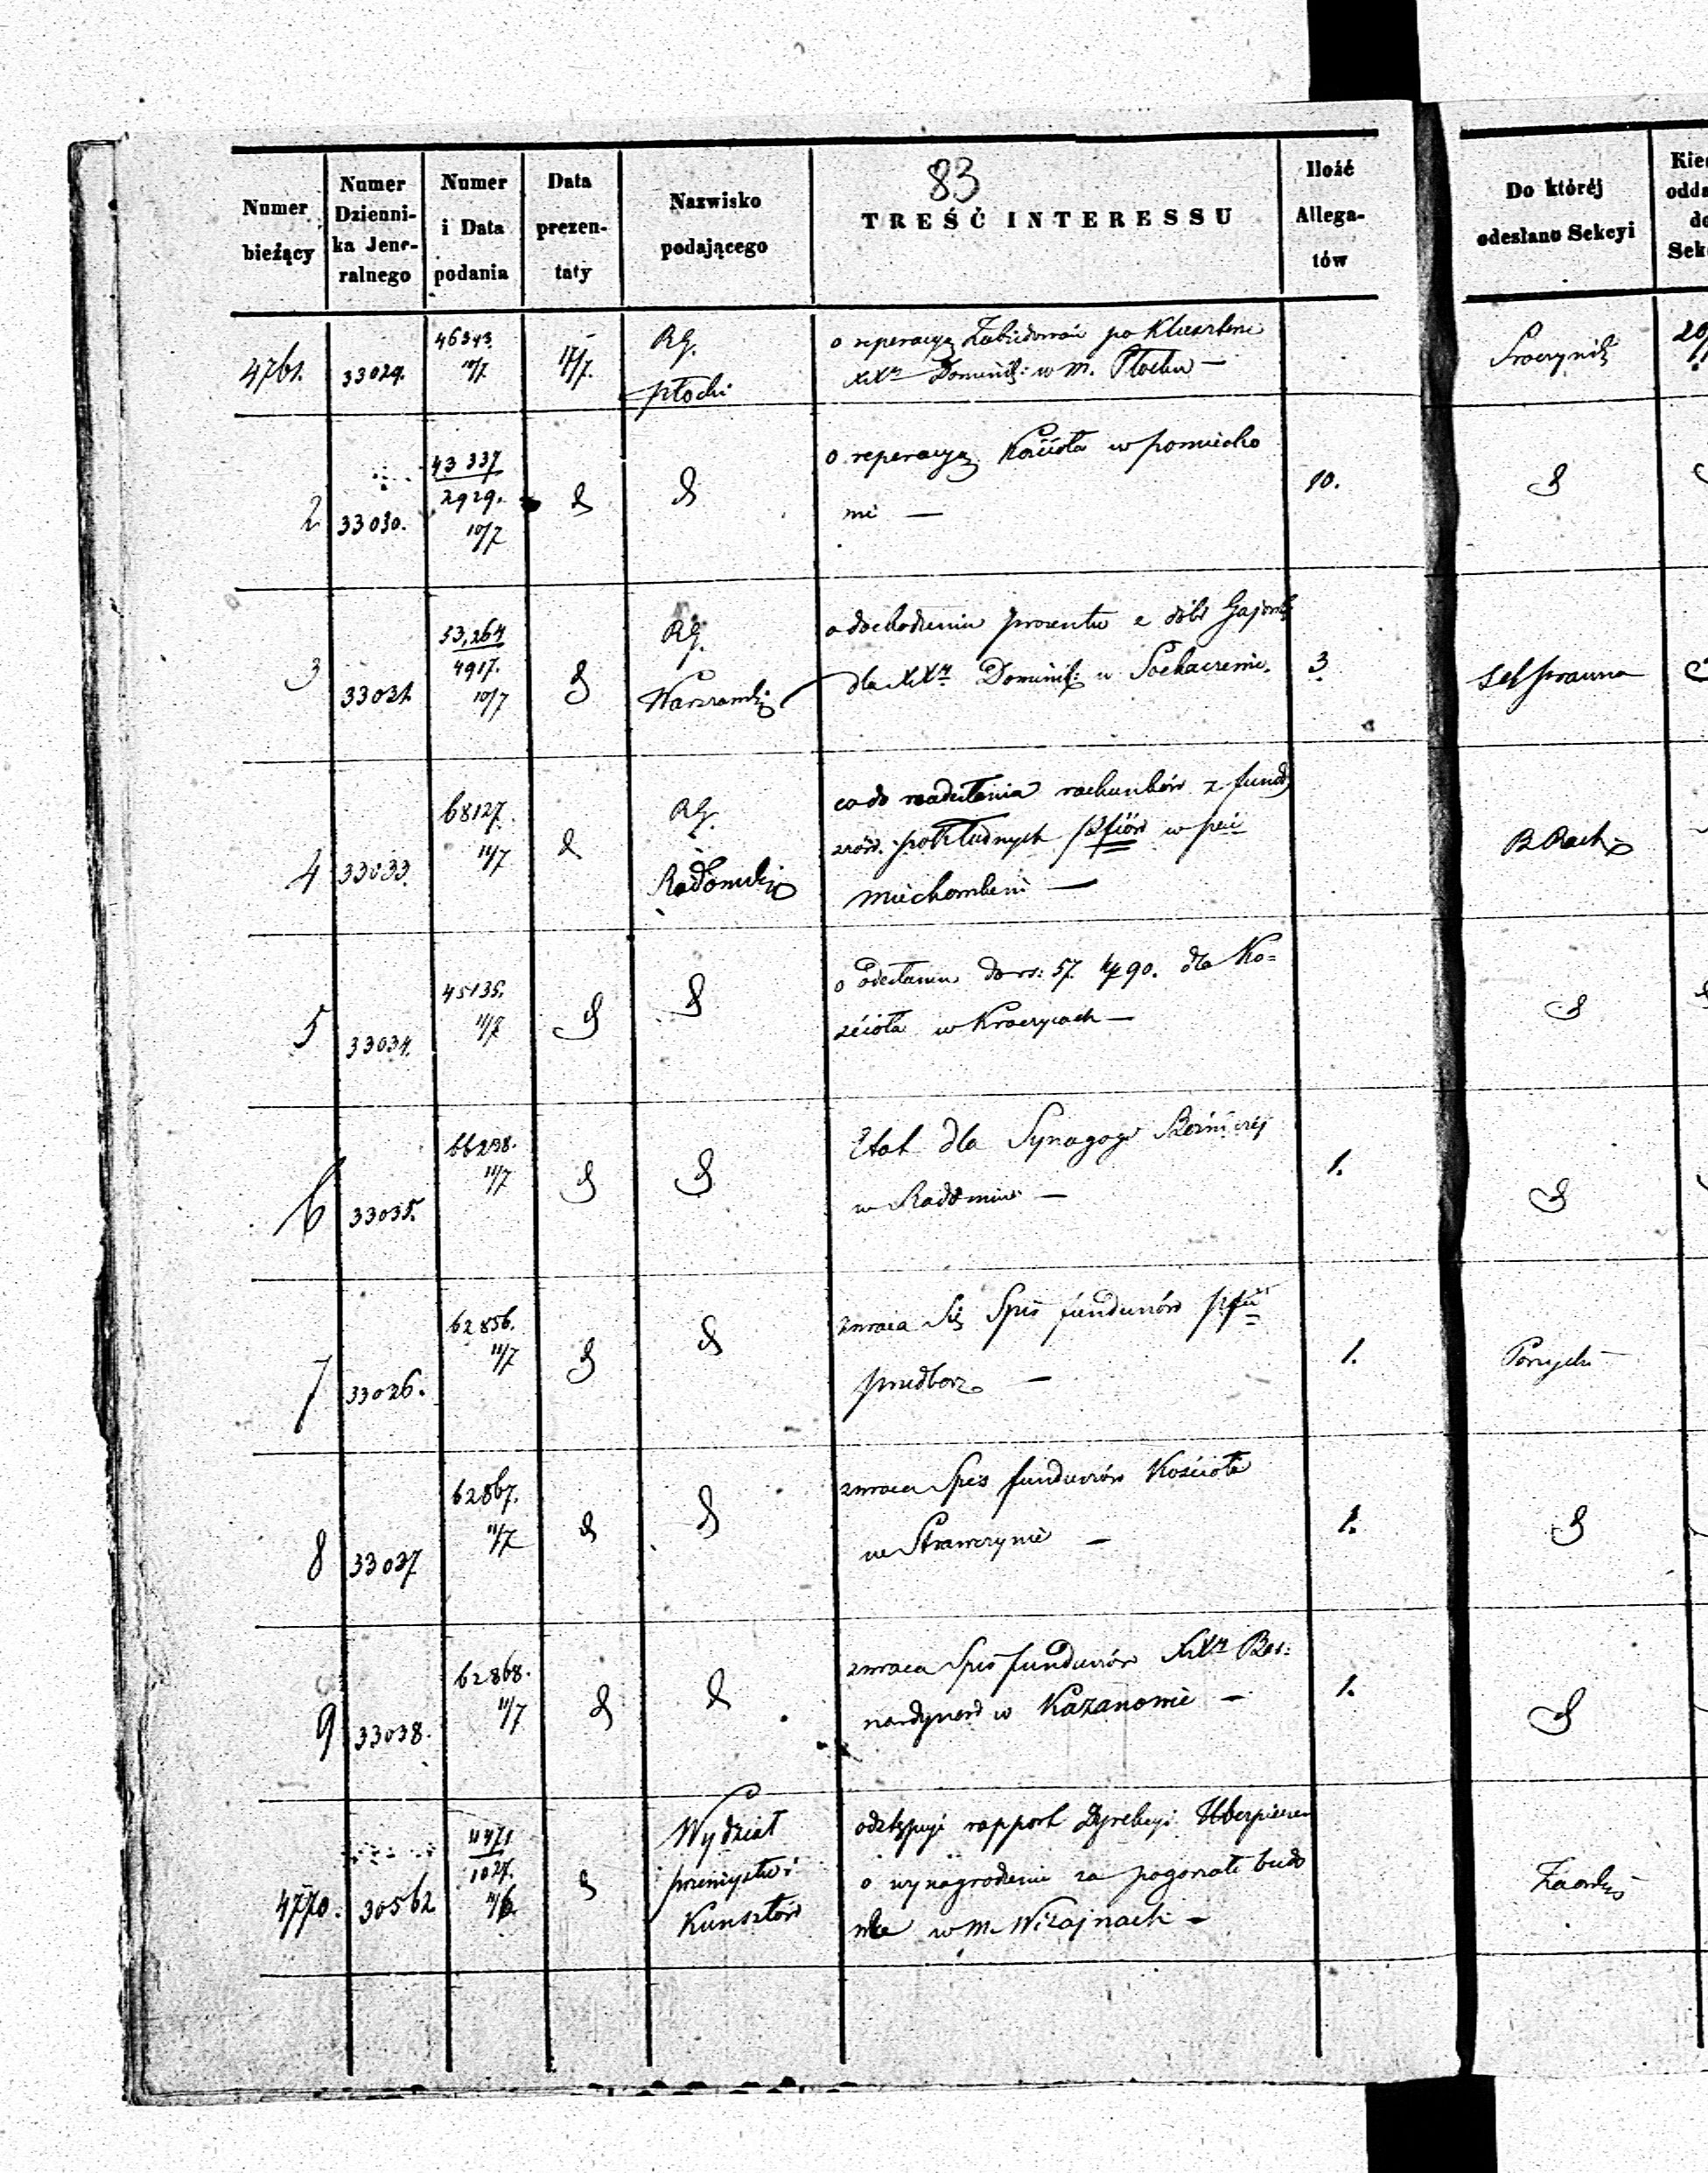 83
Numer bieżący
Numer Dzienni-
ka Jene-
ralnego
Numer i Data podania
Data prezen-
taty
Nazwisko podającego
TREŚĆ INTERESSU
Ilość Allega-
tów
Do któréj odesłano Sekcyi
4761. 33029. 46343 10/7 17/7. RG. Płocki
o reperacyą Zabudowań po Klasztorze
XXn Dominik: w M. Płocku —
2 33030. 43337 2929. 10/7
o reperacyą Kościoła w pomiecho
wie —
10.
3 33031. 53,264 4917. 10/7 RG. Warszawski
o dochodzeniu procentu z dóbr
dla XXn Dominik: w Sochaczewie.
3
4 33033. 68127. 11/7 RG. Radomski
co do nadesłania rachunków z fund
w pcie
miechowskim —
B Rach
5 33034. 45135. 11/7
o odesłaniu do rs: 57. k 90. dla Ko=
ścioła w —
6 33035. 66238. 11/7
Etat dla Synagogi Bożniczéj
w Radomiu —
1.
7 33036. 62856. 11/7
zwraca Się Spis funduszów
przedborz —
1.
8 33037 62867. 11/7
zwraca Spis funduszów Kościoła
w Strawczynie —
1.
9 33038. 62868. 11/7
zwraca Spis funduszów XXn Ber:
nardynów w Kazanowie —
1.
4770. 30562 11471 1027. Wydział przemysłu i Kunsztów
odstępuje rapport Dyrekcyi Ubezpieczen
o wynagrodzenie za pogorzałe budo
wle w M. Wiżajnach —